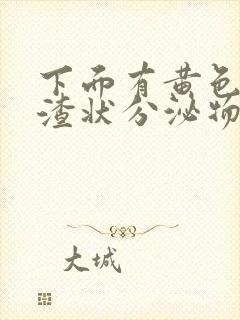 下而有黄色
渣状分泌物
大城